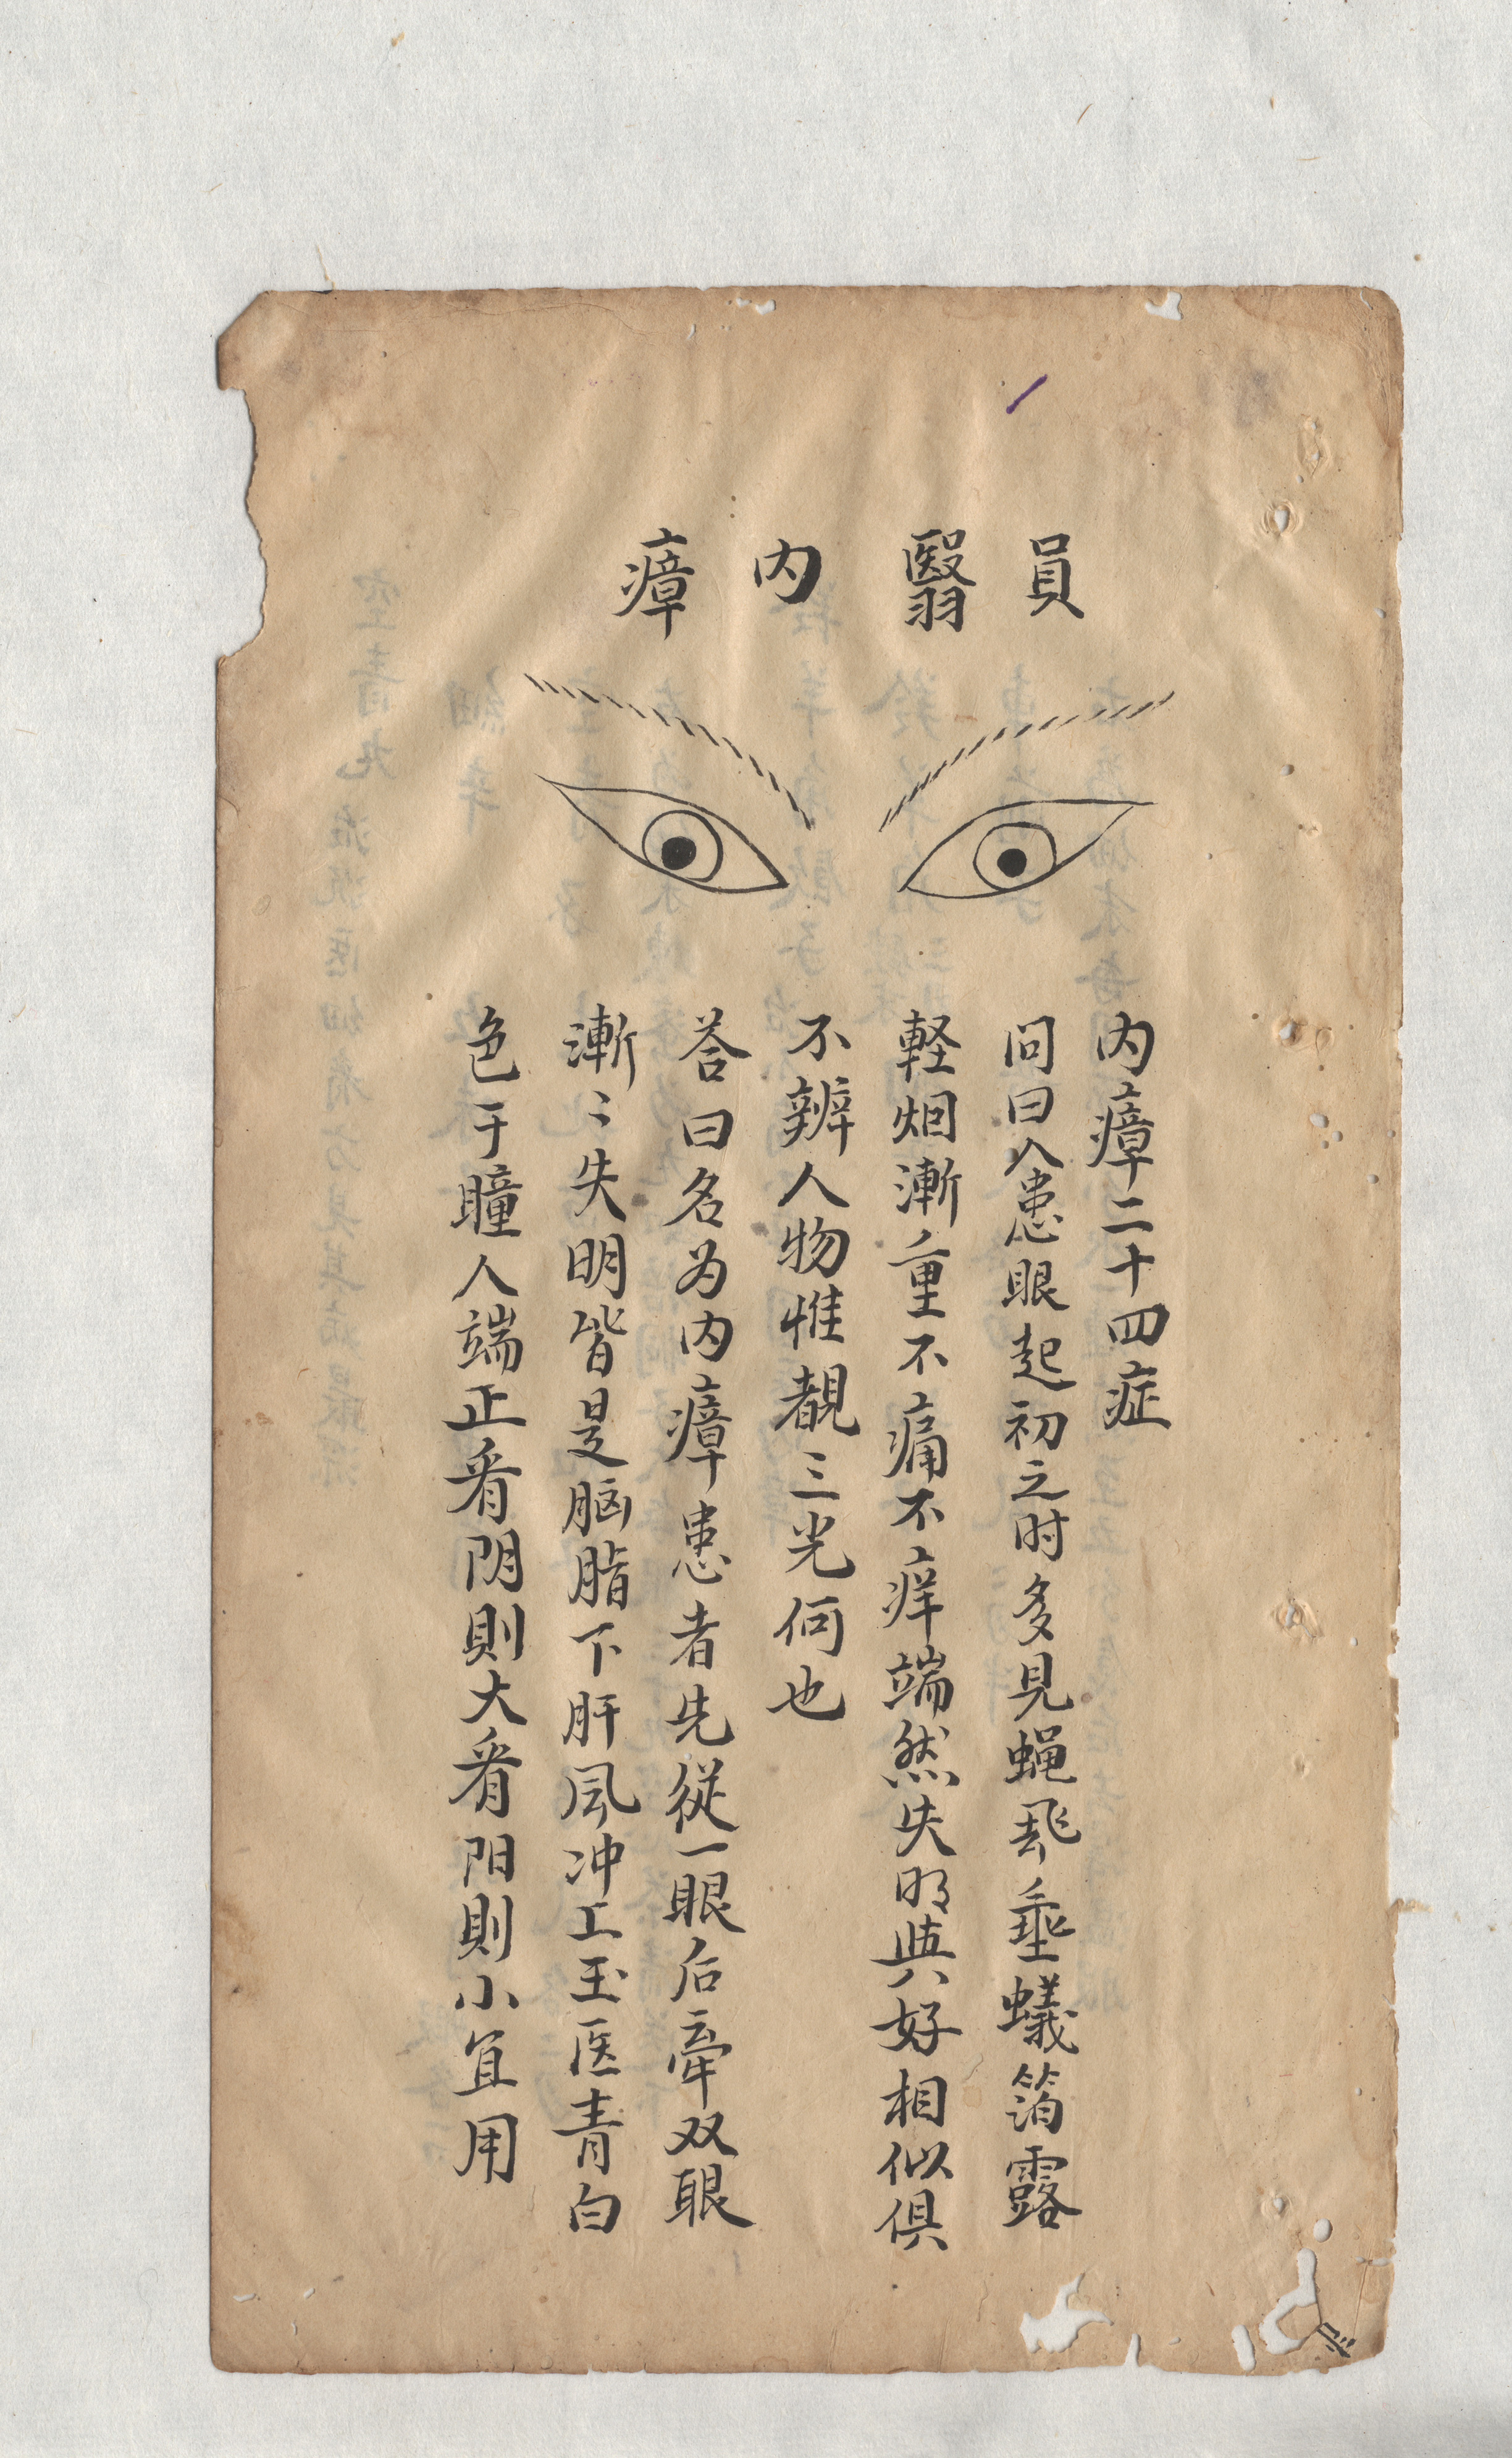 員翳内瘴
内瘴二十四症
问曰人患眼起初之时多見蝇飛垂蟻箔露
軽烟漸重不痛不痒端然失明與好相似俱
不辨人物惟覩三光何也
荅曰名为内瘴患者先従一眼后牽双眼
漸〻失明皆是脳脂下肝風冲工玉医青白
色于瞳人端正看阴則大看阳則小宜用